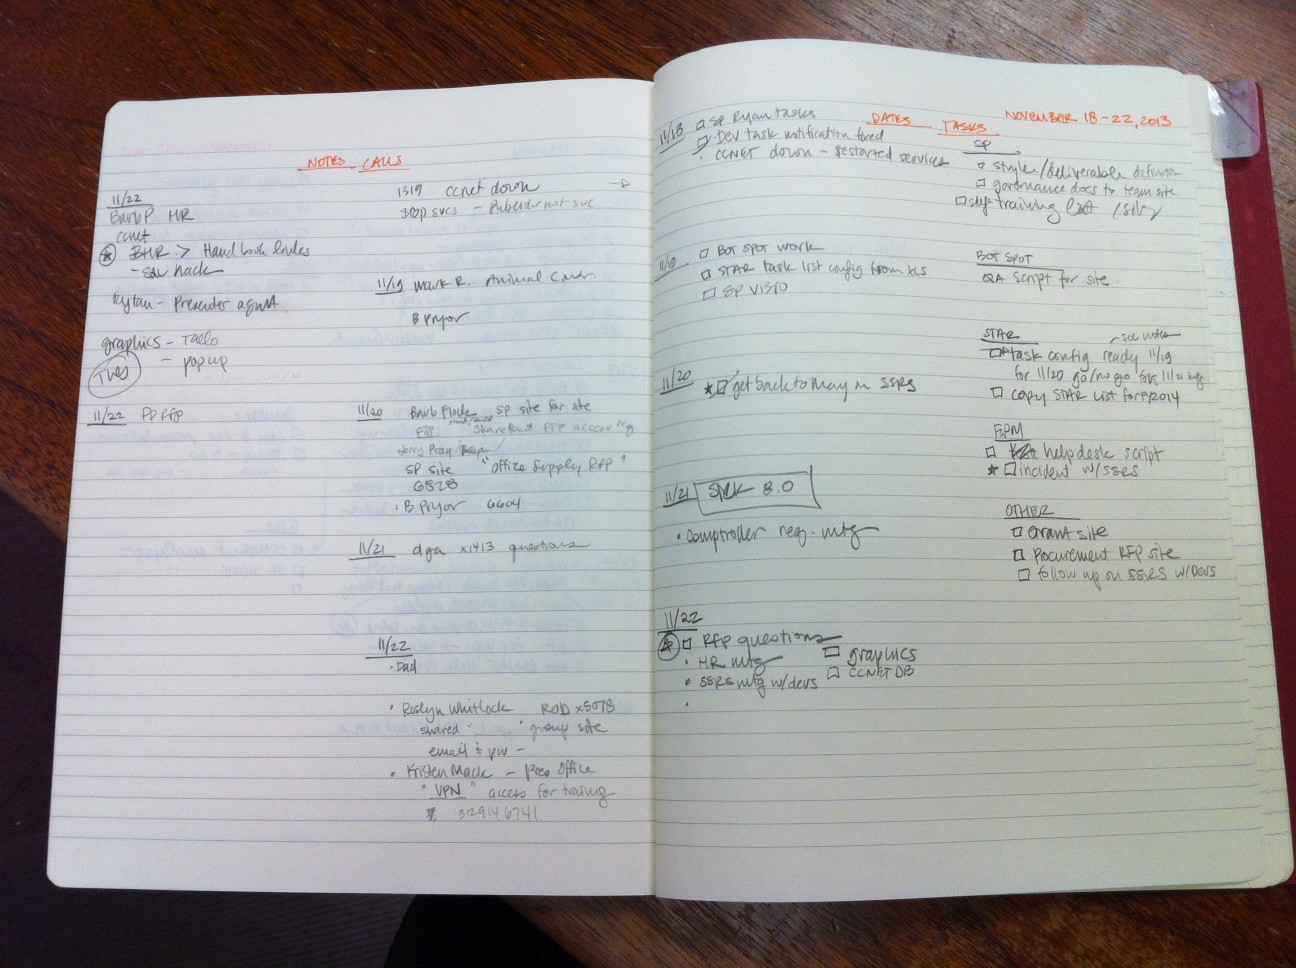 NOTES CALLS
11/22
Barb P HR
ccnet
BHR > Handbook links
hack
- Presenter
graphics -
- popup
Tues
11/22
1319 ccnet down
svcs - Publisher not svc
11/19 Mark R. Animal
B Pryor
11/20 Barb SP site for
FTP SharePoint FTP access req
SP site "Office Supply RFP"
6828
• B Pryor 6604
11/21 dga x1413 questions
11/22
• Dad
• Roslyn Whitlock ROD x5078
shared group site
email & pw -
• Kristen Mack - Pres Office
"VPN" access for training
312914 6741
DATES TASKS NOVEMBER 18-22, 2013
11/18 SP Ryan tasks
DEV task notification fixed
• CCNET down - restarted services
11/19 BOT SPOT work
STAR task list config from xls
SP VISIO
11/20
★ get back to May on SSRS
11/21 8.0
• Comptroller req. mtg
11/22
RFP questions
• HR mtg
• SSRS mtg w/devs
•
graphics
CCNET DB
SP
style/deliverable definition
governance docs to team site
training
BOT SPOT
QA script for site
STAR
see notes
task config ready 11/19
for 11/20 go/no go for 11/21 mtg
copy STAR list for FP2014
helpdesk script
★ incident w/SSRS
OTHER
Grant site
Procurement RFP site
follow up on SSRS w/DEVS